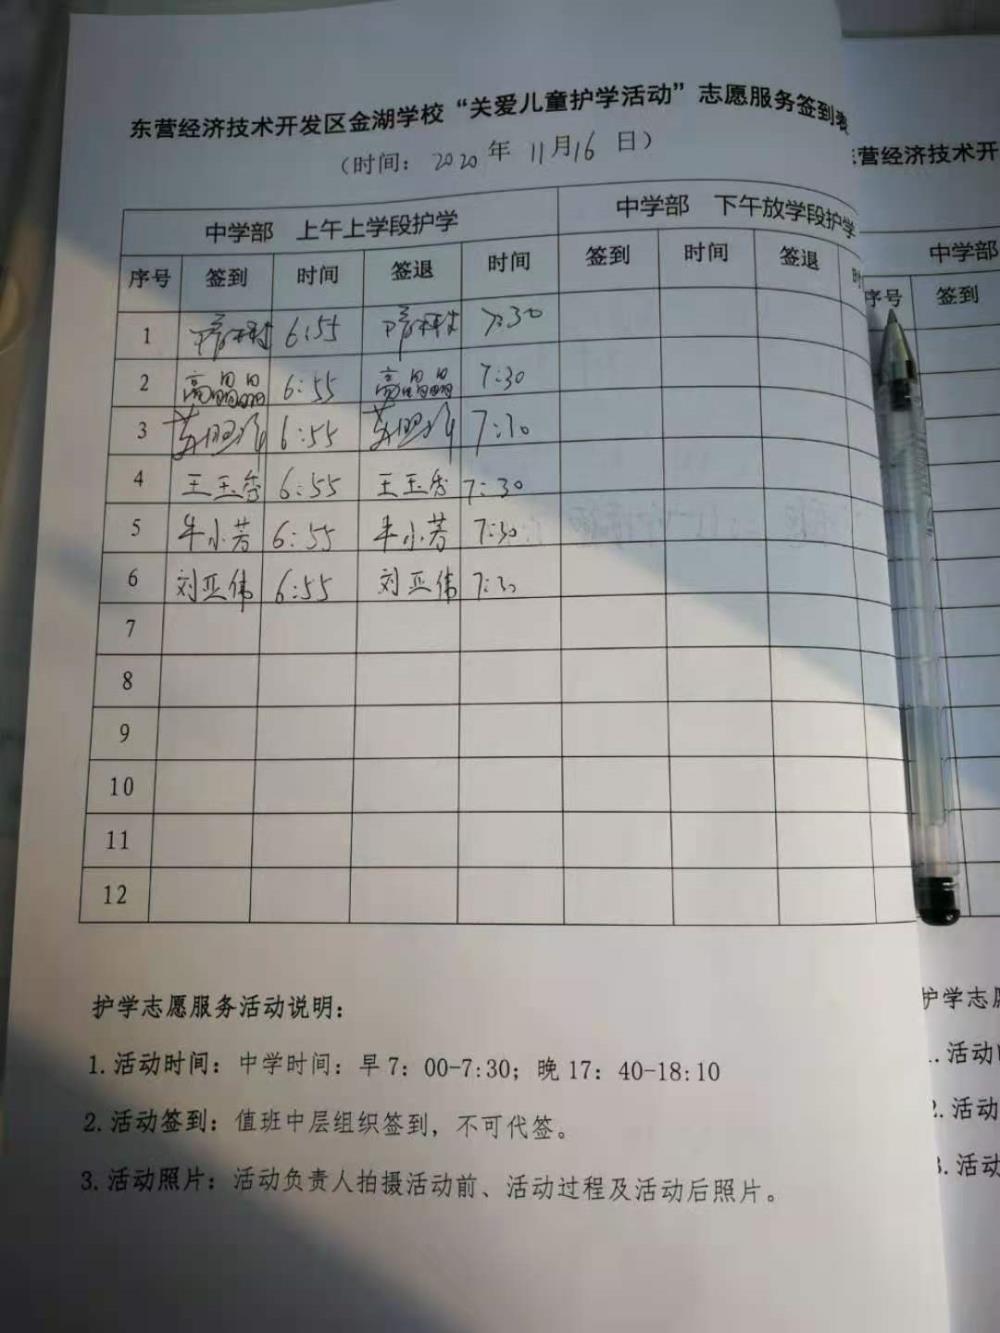 东营经济技术开发区金湖学校“关爱儿童护学活动”志愿服务签到表
（时间：2020年11月16日）
中学部 上午上学段护学 中学部 下午放学段护学
序号 签到 时间 签退 时间 签到 时间 签退 时
1 6:55 7:30
2 高晶晶 6:55 高晶晶 7:30
3 6:55 7:30
4 王玉香 6:55 王玉香 7:30
5 牛小芳 6:55 牛小芳 7:30
6 刘亚伟 6:55 刘亚伟 7:30
7
8
9
10
11
12
护学志愿服务活动说明：
1.活动时间：中学时间：早7：00-7:30；晚17：40-18:10
2.活动签到：值班中层组织签到，不可代签。
3.活动照片：活动负责人拍摄活动前、活动过程及活动后照片。
营经济技术开
中学部
序号 签到
护学志
.活动
2.活动
3.活动